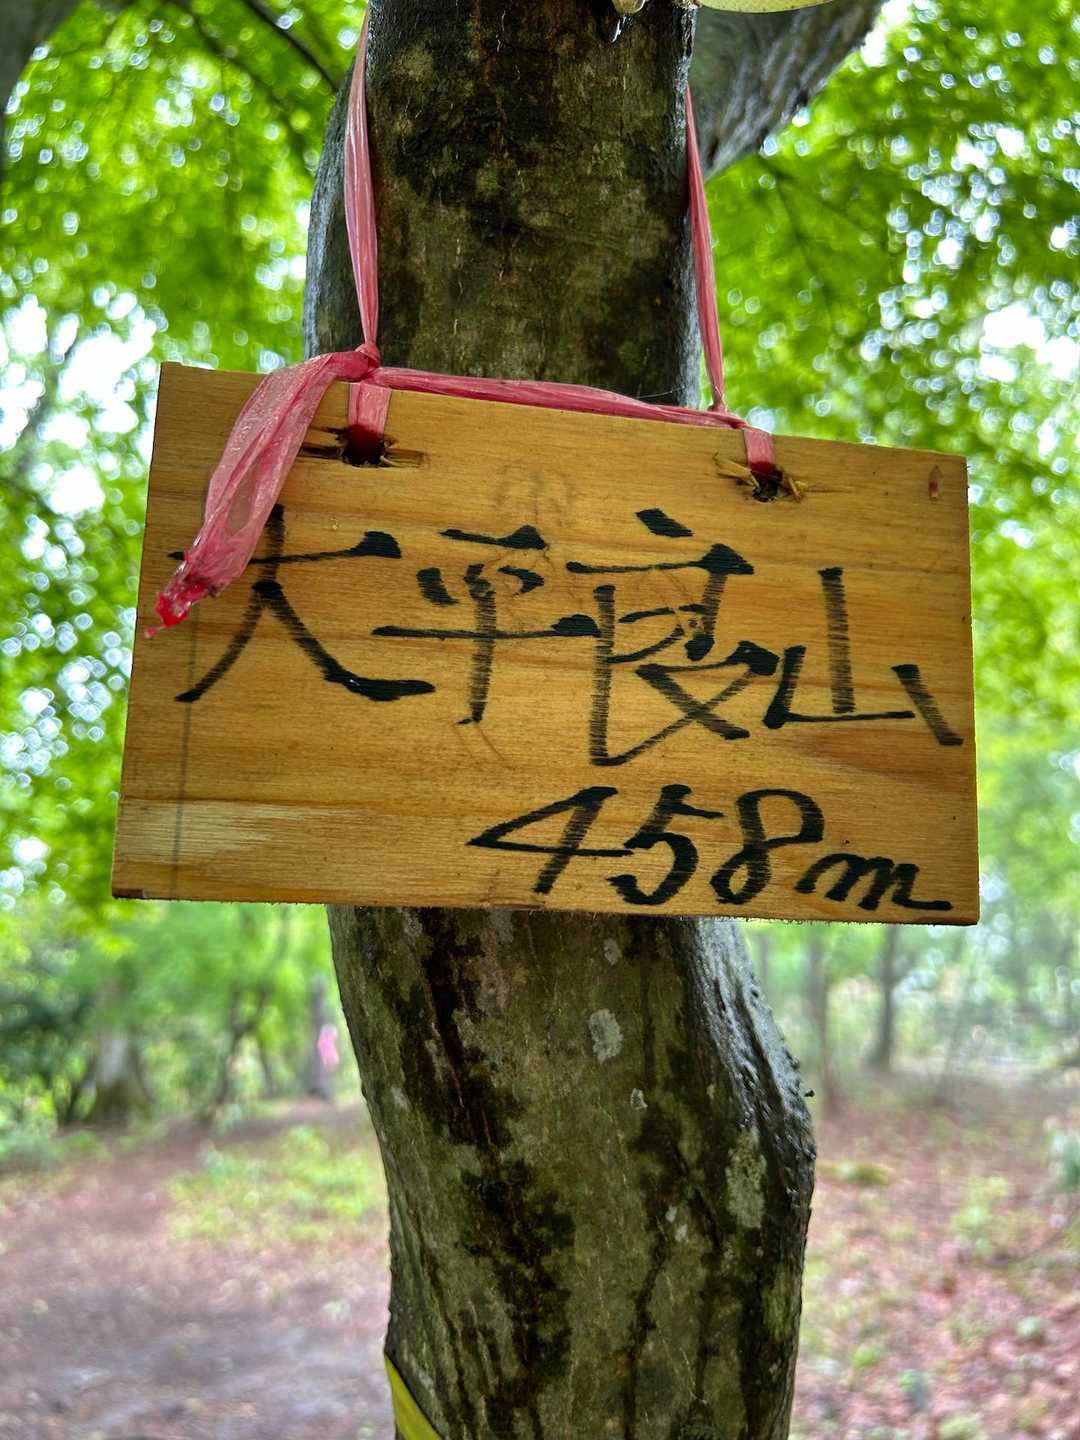 大平良山
458m